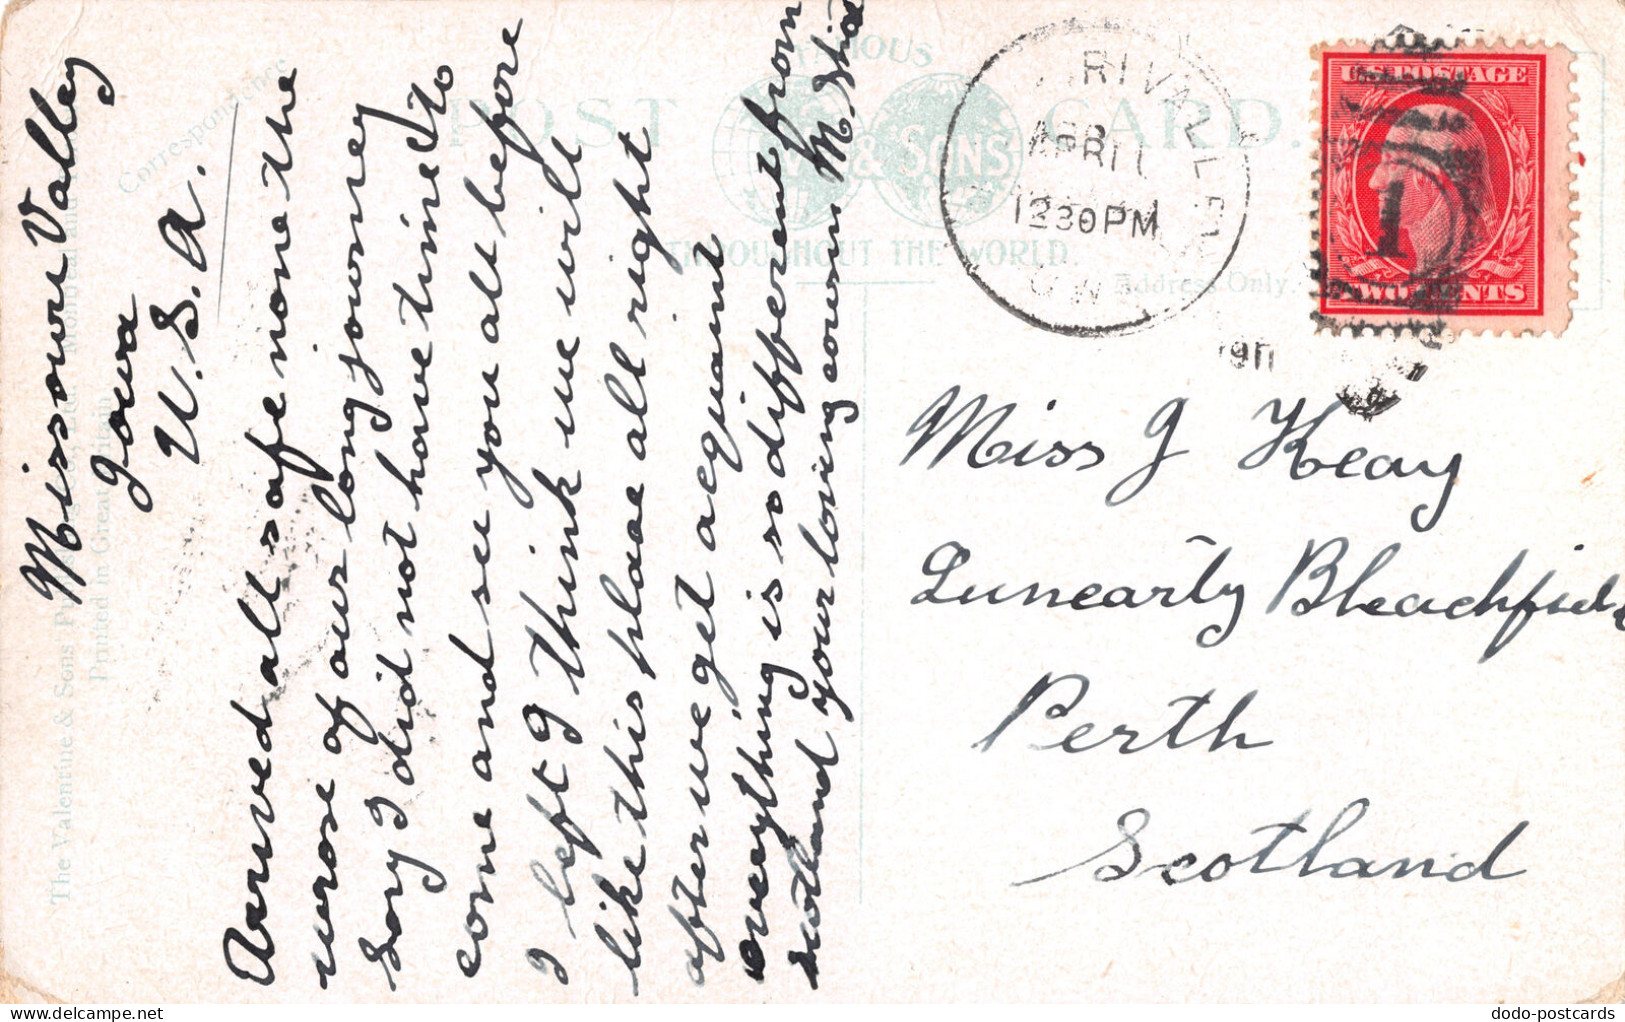 Missouri Valley
Iowa
U.S.A.
Arrived all safe none the
worse of our long journey
Sory I did not have time to
come and see you all before
I left I think we will
like this place all right
after we get acquant
everything is so different from
scotland your loving cousin M
Correspondence
FAMOUS
POST CARD.
& SONS
THROUGHOUT THE WORLD.
Address Only.
The Valentine & Sons
Printed in Great Britain
RIVAL
APR 1
1230PM
1911
U.S. POSTAGE
1
TWO CENTS
Miss J Keay
Lunearty Bleachfield
Perth
Scotland
dodo-postcards